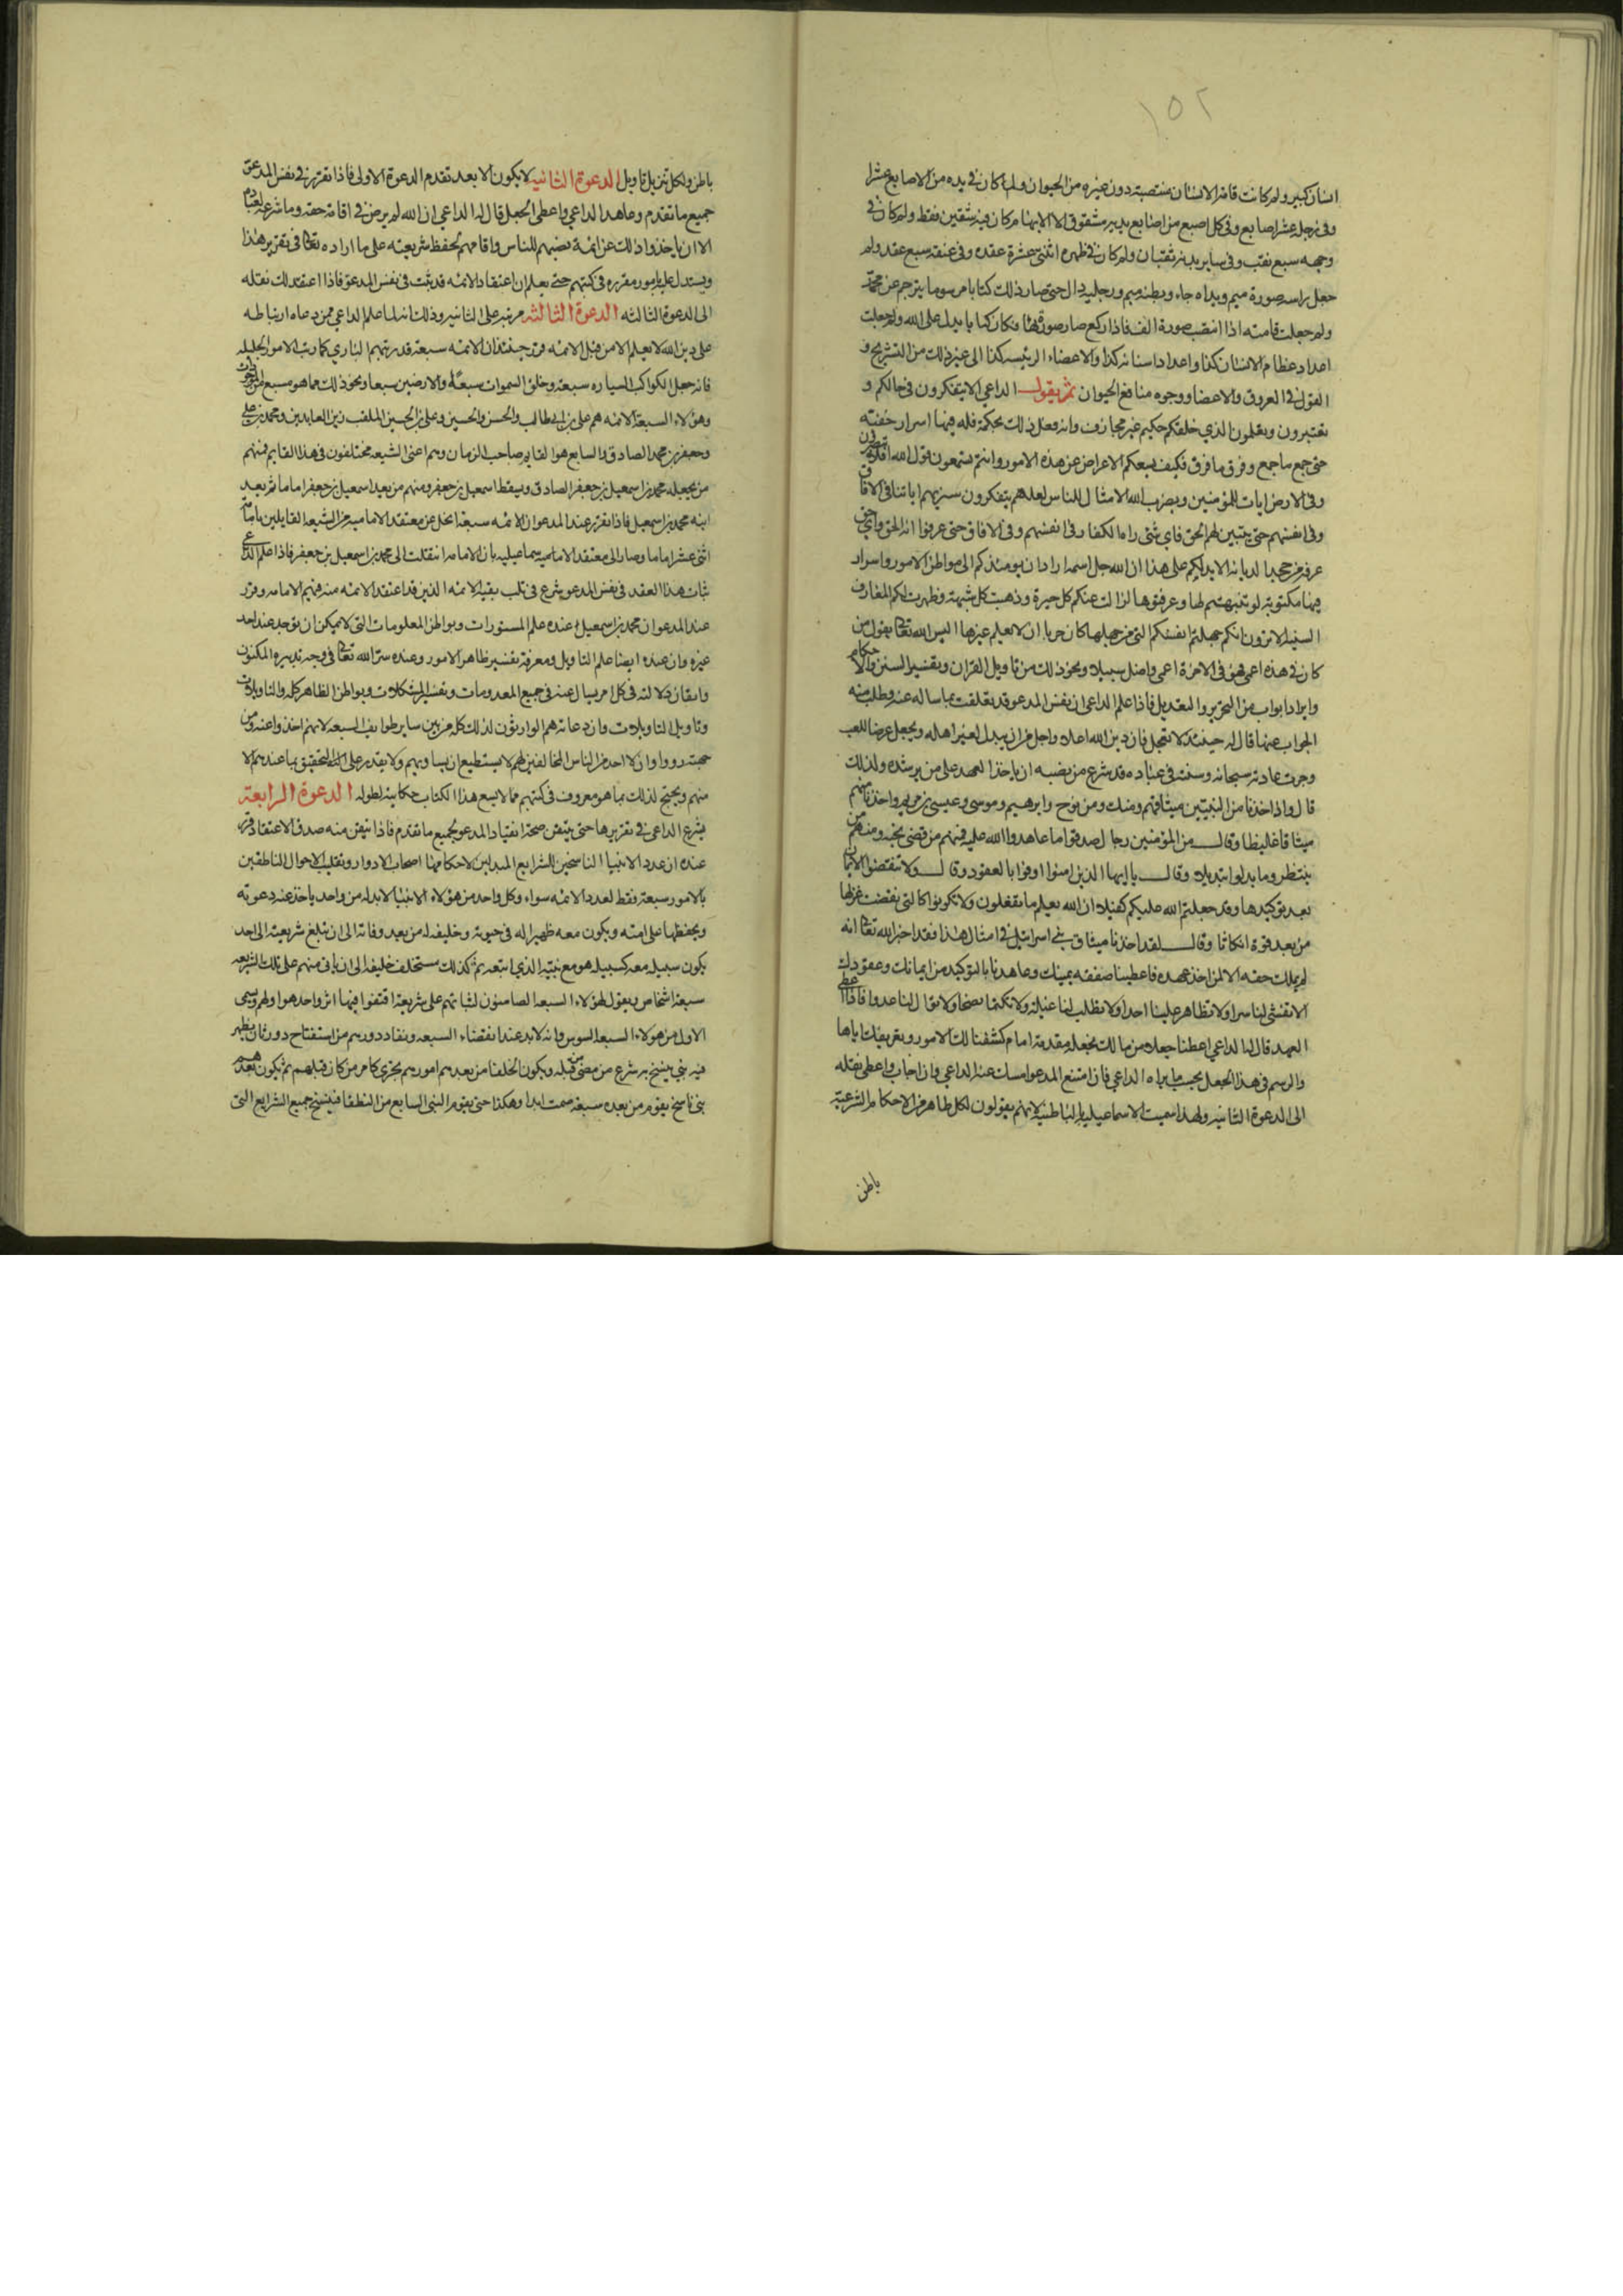 ١٥٢
انسان كبير ولم كانت قامة الانسان منتصبة دون غيره من الحيوان ولم كان في يده من الاصابع عشرا
وفي رجله عشر اصابع وفي كل اصبع من اصابع يديه شقوق الا الابهام كان فيه شقين فقط ولم كان في
وجهه سبع نقب وفي ساير بدنه ثقبان ولم كان في ظهره اثنتي عشرة عقده وفي عنقه سبع عقد ولم
جعل راسه صورة ميم ويداه حاء وبطنه ميم ورجليه دال حتى صار ذلك كتابا مرسوما يترجم عن محمد
ولم جعلت قامته اذا انتصب صورة الف فاذا ركع صار صورة فكان كتابا يدل على الله ولم جعلت
اعداد عظام الانسان كذا واعداد اسنانه كذا والاعضاء الرئيسه كذا الى غير ذلك من التشريح و
القول في العروق والاعضا ووجوه منافع الحيوان ثم يقول الداعي الا تتفكرون في حالكم و
تعتبرون وتعلمون الذي خلقكم حكيم غير مجازف وانه فعل ذلك بحكمة فله فيها اسرار خفيه
حتى جمع ما جمع وفرق ما فرق فكيف يسعكم الاعراض عن هذه الامور وانتم تسمعون قول الله
وفي الارض ايات للمؤمنين ويضرب الله الامثال للناس لعلهم يتفكرون سنريهم اياتنا في الافاق
وفي انفسهم حتى يتبين لهم الحق فاي شئ راه الكفار في انفسهم وفي الافاق حتى عرفوا انه الحق واي حق
عرفه من جحد الديانه الا يدلكم على هذا ان الله جل اسمه اراد ان يرشدكم الى بواطن الامور واسرار
فيها مكتوبة لو تنبهتم لها وعرفتوها لزالت عنكم كل حيرة وذهبت كل شبهة وظهرت لكم المعارف
السنيه الا ترون انكم جهلتم انفسكم التي من جهلها كان حريا ان لا يعلم غيرها اليس الله تعالى يقول من
كان في هذه اعمى فهو في الاخرة اعمى واضل سبيلا ونحو ذلك من تاويل القران وتفسير السنن والاحكام
وايراد ابواب من التجوير والتعديل فاذا علم الداعي ان نفس المدعو قد تعلقت بما ساله عنه وطلب منه
الجواب عنها قال له حينئذ لا تعجل فان دين الله اعلا واجل من ان يبذل لغير اهله ويجعل غرضا للعب
وجرت عادته سبحانه وسنته في عباده قد شرع من نصبه ان ياخذ العهد على من يرشده ولذلك
قال واذ اخذنا من النبيين ميثاقهم ومنك ومن نوح وابرهيم وموسى وعيسى بن مريم واخذنا منهم
ميثاقا غليظا وقال من المؤمنين رجال صدقوا ما عاهدوا الله عليه فمنهم من قضى نحبه ومنهم من
ينتظر وما بدلوا تبديلا وقال يا ايها الذين امنوا اوفوا بالعقود وقال ولا تنقضوا الايمان
بعد توكيدها وقد جعلتم الله عليكم كفيلا ان الله يعلم ما تفعلون ولا تكونوا كالتي نقضت غزلها
من بعد قوة انكاثا وقال لقد اخذنا ميثاق بني اسرائيل في امثال هذا فقد اخبر الله تعالى انه
لم يملك حقه الا لمن اخذ عهده فاعطينا صفقة يمينك وعاهدنا بالتوكيد من ايمانك وعقودك
الا تفشي لنا سرا ولا تظاهر علينا احدا ولا تطلب لنا غيلة ولا تكتمنا نصحا ولا توال لنا عدوا فاذا اعطى
العهد قال له الداعي اعطنا جعلا من مالك نجعله مقدمة امام كشفنا لك الامور وتعريفك اياها
والرسم في هذا الجعل بحسب ما يراه الداعي فان امتنع المدعو امسك عنه الداعي وان اجاب واعطى نقله
الى الدعوة الثانيه ولهذا سميت الاسماعيليه بالباطنيه لانهم يقولون لكل ظاهر من الاحكام الشرعية
باطن
باطن ولكل تنزيل تاويل الدعوة الثانيه لا يكون الا بعد تقدم الدعوة الاولى فاذا تقرر في نفس المدعو
جميع ما تقدم وعاهد الداعي واعطى الجعل قال له الداعي ان الله لم يرض في اقامة حقه وما شرع لعباده
الا ان ياخذوا ذلك عن ائمة نصبهم للناس واقامهم لحفظ شريعته على ما اراده تعالى في تقرير هذا
ويستدل عليه بامور مقرره في كتبهم حتى يعلم ان اعتقاد الائمه قد ثبت في نفس المدعو فاذا اعتقد ذلك نقله
الى الدعوة الثالثه الدعوة الثالثه مرتبه على الثانيه وذلك انه لما علم الداعي ممن دعاه ارتباطه
على دين الله لا يعلم الا من قبل الائمه قرر حينئذ ان الائمه سبعة قد رتبهم الباري كما رتب الامور الجليله
فانه جعل الكواكب السياره سبعة وخلق السموات سبعا والارضين سبعا ونحو ذلك مما هو سبع
وهؤلاء السبعة الائمه هم علي بن ابي طالب والحسن والحسين وعلي بن الحسين الملقب زين العابدين ومحمد بن علي
وجعفر بن محمد الصادق والسابع هو القايم صاحب الزمان وهم اعني الشيعه مختلفون في هذا القايم فمنهم
من يجعله محمد بن اسمعيل بن جعفر الصادق ويسقط اسمعيل بن جعفر ومنهم من يعد اسمعيل بن جعفر اماما ثم يعد
ابنه محمد بن اسمعيل فاذا تقرر عند المدعو ان الائمه سبعة انحل عن معتقد الاماميه من الشيعه القايلين بامامة
اثني عشر اماما وصار الى معتقد الاسماعيليه بان الامامه انتقلت الى محمد بن اسمعيل بن جعفر فاذا علم الداعي
ثبات هذا العقد في نفس المدعو شرع في ثلب بقية الائمه الذين قد اعتقد الائمه منه فيهم الامامه وقرر
عند المدعو ان محمد بن اسمعيل عنده علم المستورات وبواطن المعلومات التي لا يمكن ان توجد عند احد
غيره وان عنده ايضا علم التاويل ومعرفة تفسير ظاهر الامور وعنده سر الله تعالى في وجه تدبيره المكنون
واتقان دلالته في كل امر يسال عنه في جميع المعدومات وتفسير المشكلات وبواطن الظاهر كله والتاويلات
وتاويل التاويلات وان دعاته هم الوارثون لذلك كله من بين ساير طوايف الشيعه لانهم اخذوا عنه ومن
جهته رووا وان لا احد من الناس المخالفين لهم لا يستطيع ان يساويهم ولا يقدر على التحقيق بما عندهم الا
منهم ويحتج لذلك بما هو معروف في كتبهم مما لا يسع هذا الكتاب حكايته لطوله الدعوة الرابعة
يشرع الداعي في تقريرها حتى يتيقن صحة انقياد المدعو لجميع ما تقدم فاذا تيقن منه صدق الاعتقاد قرر
عنده ان عدد الانبيا الناسخين للشرايع المبدلين لاحكامها اصحاب الادوار وتقليب الاحوال الناطقين
بالامور سبعة فقط لعدد الائمه سواء وكل واحد من هؤلاء الانبيا لابد له من واحد ياخذ عنه دعوته
ويحفظها على امته ويكون معه ظهيرا له في حيوته وخليفة له من بعد وفاته الى ان تبلغ شريعته الى احد
يكون سبيله معه كسبيله هو مع نبيه الذي اتبعه ثم كذلك مستخلف خليفه الى ان ياتي منهم على تلك الشريعه
سبعة اشخاص ويقول لهؤلاء السبعة الصامتون لثباتهم على شريعة اقتفوا فيها اثر واحد هو اولهم ويسمى
الاول من هؤلاء السبعه السوس وانه لابد عند انقضاء السبعه ونفاد دورهم من استفتاح دور ثان يظهر
فيه نبي ينسخ به شرع من مضى من قبله ويكون الخلفا من بعدهم امورهم تجري كامر من كان قبلهم ثم يكون بعدهم
نبي ناسخ يقوم من بعده سبعة صمت ابدا وهكذا حتى يقوم النبي السابع من النطقا فينسخ جميع الشرايع التي